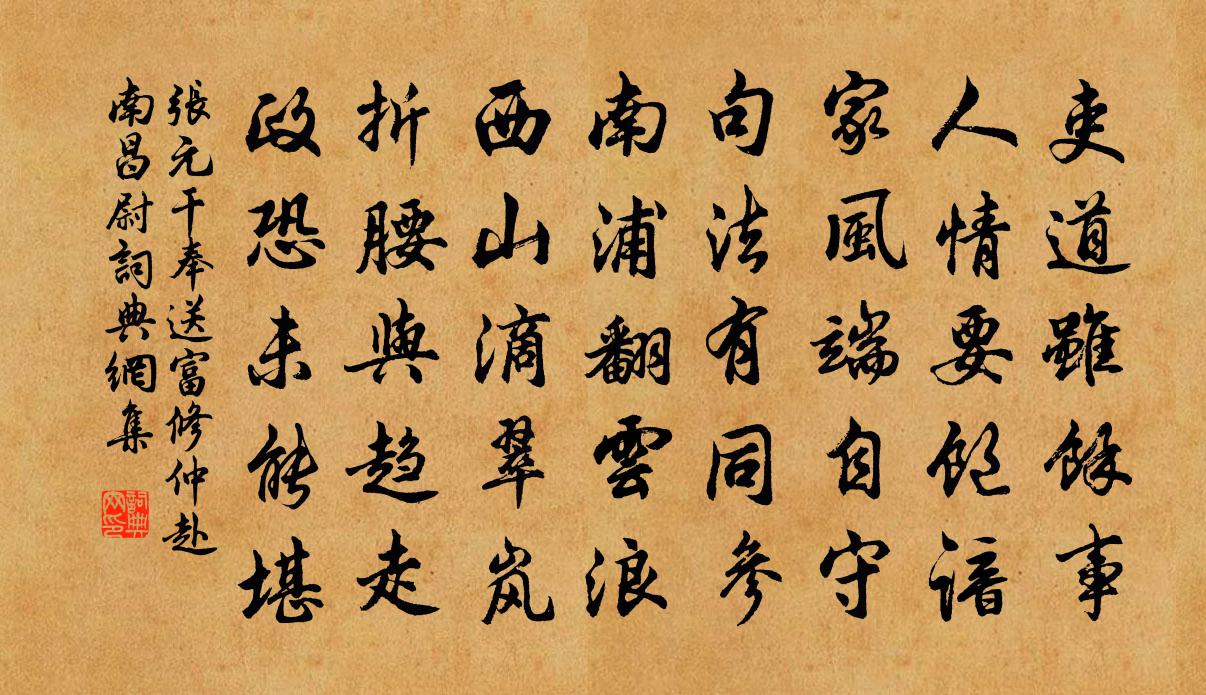 吏道雖餘事
人情要飽諳
家風端自守
句法有同參
南浦翻雲浪
西山滴翠岚
折腰與趋走
政恐未能堪
張元干奉送富修仲赴
南昌尉詞典網集
詞典
网印